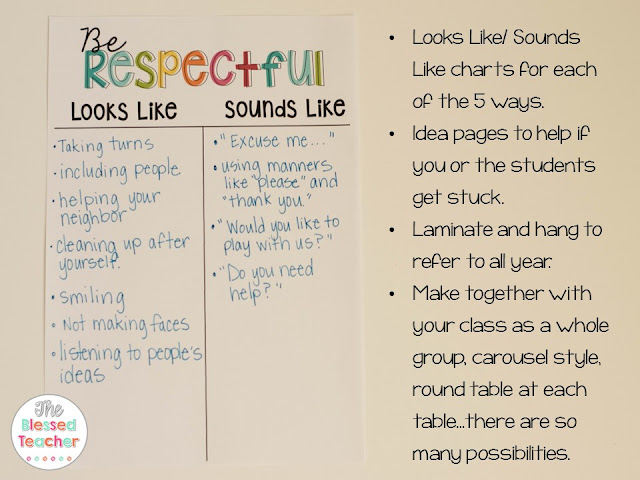 Be
Respectful
Looks Like
Sounds Like
• Taking turns
• including people
• helping your
neighbor
• cleaning up after
yourself.
• smiling
• Not making faces
• listening to people's
ideas
• "Excuse me..."
• using manners
like "please" and
"thank you."
• "Would you like to
play with us?"
• "Do you need
help?"
• Looks Like/ Sounds
Like charts for each
of the 5 ways.
• Idea pages to help if
you or the students
get stuck.
• Laminate and hang to
refer to all year.
• Make together with
your class as a whole
group, carousel style,
round table at each
table...there are so
many possibilities.
The
Blessed
Teacher